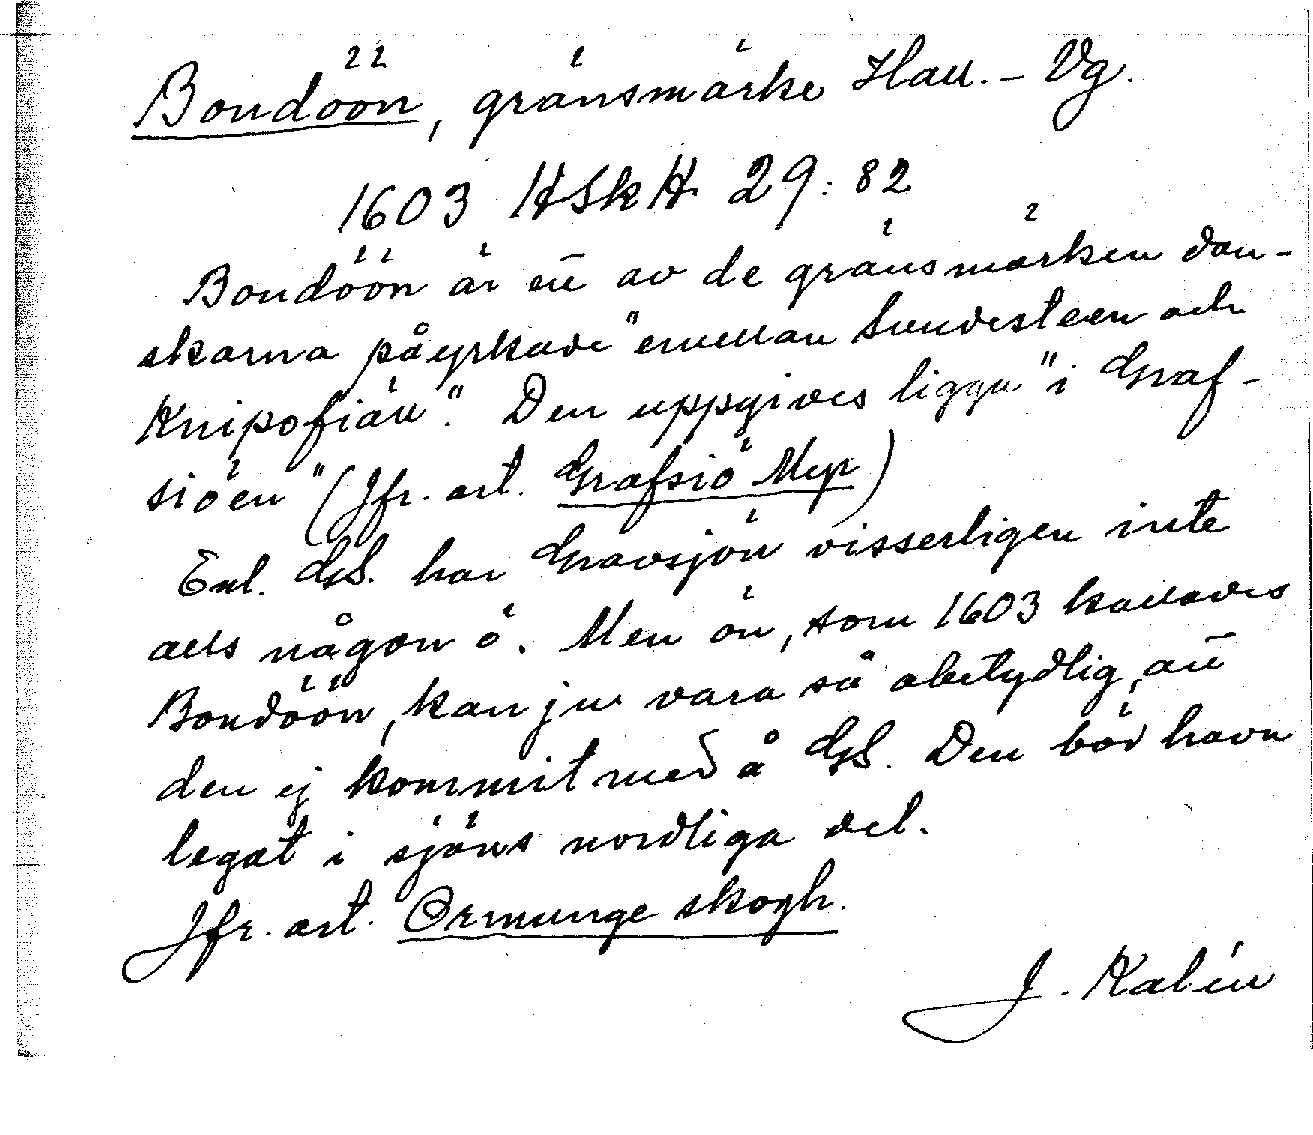 Bondöön, gränsmärke Hall. – Vg.
1603 HSkH 29:82
Bondöön är ett av de gränsmärken dan-
skarna påyrkade "emellan Sundesteen och
Knipofiäll". Den uppgives ligga "i Graf-
siöen" (Jfr. art. Grafsiö Myr)
Enl. GS. har Gravsjön visserligen inte
alls någon ö. Men ön, som 1603 kallades
Bondöön, kan ju vara så obetydlig, att
den ej kommit med å GS. Den bör hava
legat i sjöns nordliga del.
Jfr. art. Ormunge skogh.
J. Kalén